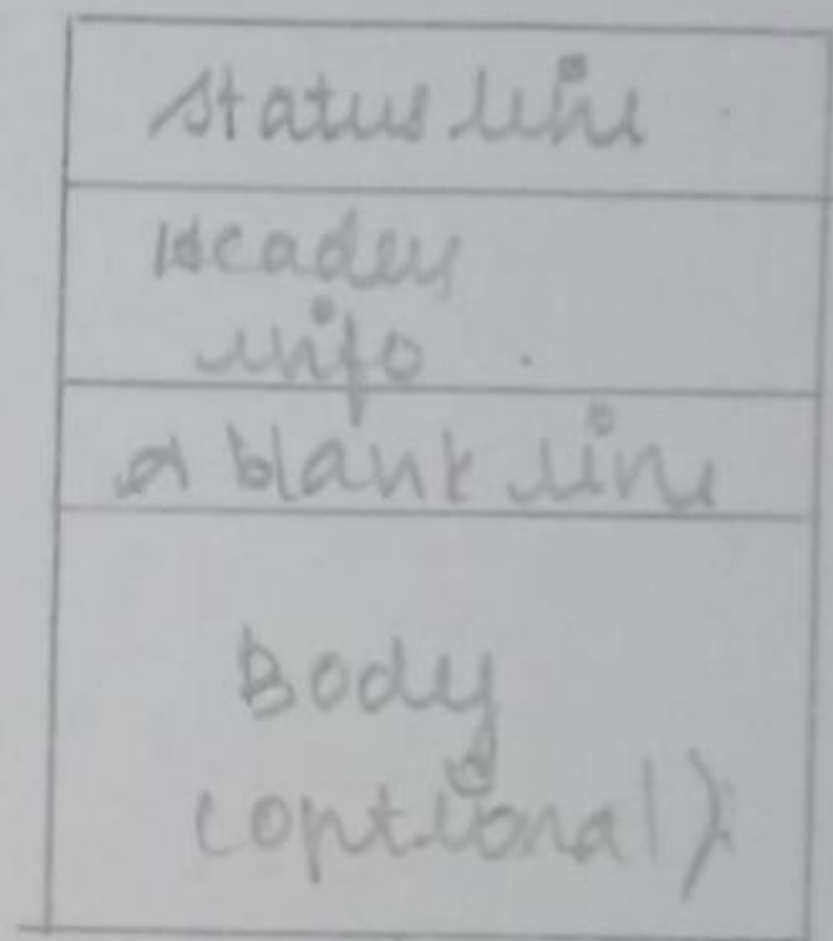 Status line
Header
info
a blank line
Body
(optional)